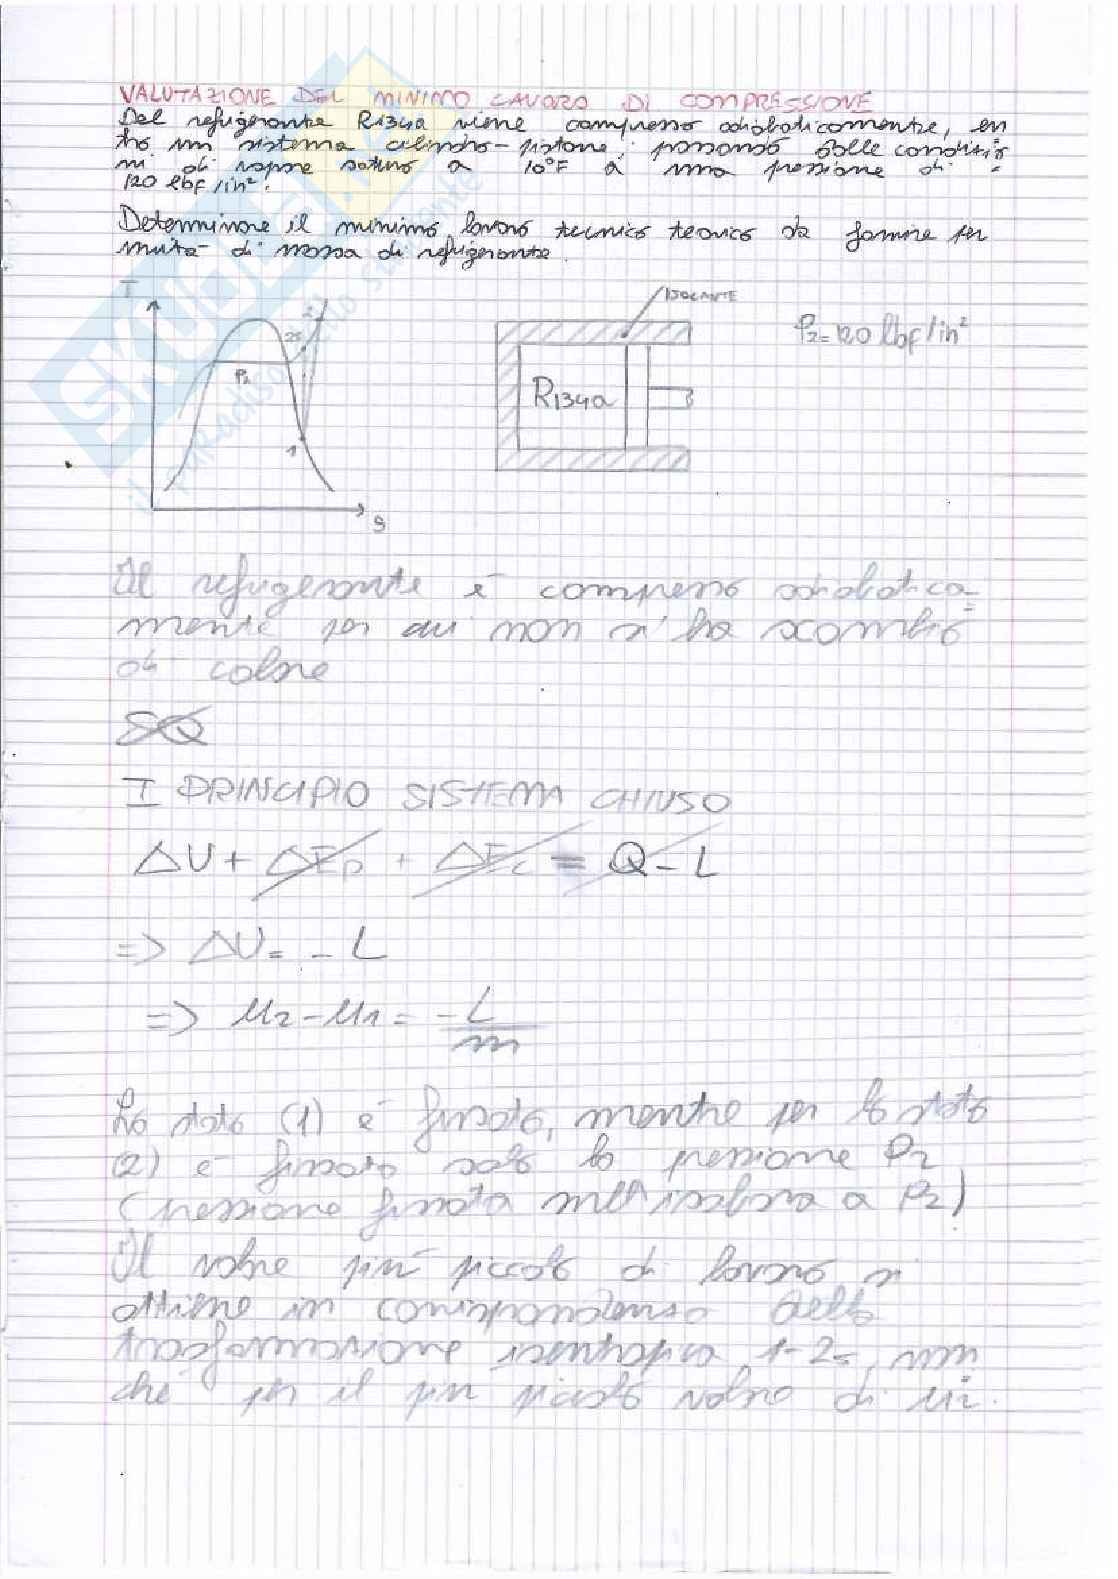 VALUTAZIONE DEL MINIMO LAVORO DI COMPRESSIONE
Del refrigerante R134a viene compresso adiabaticamente, en
tro un sistema cilindro-pistone, passando dalle condizio
ni di vapore saturo a 10°F a una pressione di
120 lbf/in².
Determinare il minimo lavoro tecnico teorico da fornire per
unità di massa di refrigerante.
T
ISOLANTE
P2=120 lbf/in²
2
2s
P2
R134a
1
S
Il refrigerante è compresso adiabatica-
mente per cui non si ha scambio
di calore
δQ
I PRINCIPIO SISTEMA CHIUSO
ΔU + ΔEp + ΔEc = Q - L
=> ΔU = - L
=> u2 - u1 = -L/m
Lo stato (1) è fissato, mentre per lo stato
(2) è fissata solo la pressione P2
(pressione fissata sull'isobara a P2)
Il valore più piccolo di lavoro si
ottiene in corrispondenza della
trasformazione isentropica 1-2s,
che per il più piccolo valore di u2.
SKUOLA
il paradiso dello studente